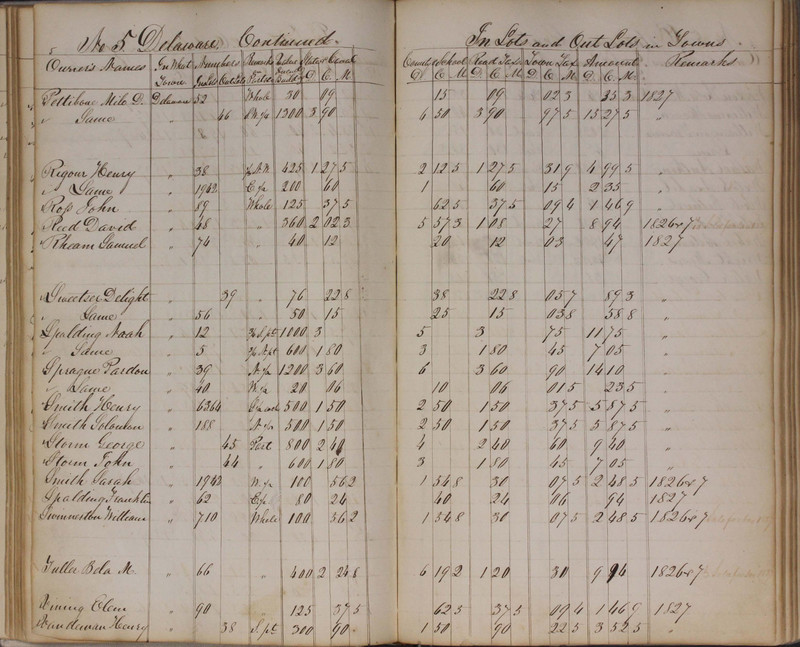 No 5 Delaware Continued. In Lots and Out Lots in Towns.
Owner's Names In What Town Numbers Inlots Outlots Remarks Value State & Canal D C M County & School D C M Road Tax D C M Town Tax D C M Amount D C M Remarks
Pettibone Milo D. Delaware 52 Whole 30 09 15 09 023 353 1827
" Same " 46 1300 3 90 6 50 3 90 975 15 275 "
Rigour Henry " 38 425 1 275 2 125 1 275 319 4 995 "
" Same " 200 60 1 60 15 2 35 "
Ross John " 89 Whole 125 375 625 375 094 1 469 "
Reed David " 48 " 360 2 023 5 573 1 08 27 8 94 1826 & 7
Rheam Samuel " 74 " 40 12 20 12 03 47 1827
Sweetser Delight " 39 " 76 228 38 228 057 893 "
" Same " 56 " 50 15 25 15 038 588 "
Spalding Noah " 12 1000 3 5 3 75 11 75 "
" Same " 5 600 1 80 3 1 80 45 7 05 "
Sprague Pardon " 39 1200 3 60 6 3 60 90 14 10 "
" Same " 40 20 06 10 06 015 235 "
Smith Henry " 500 1 50 2 50 1 50 375 5 875 "
Smith Solomon " 188 500 1 50 2 50 1 50 375 5 875 "
Storm George " 45 Part 800 2 40 4 2 40 60 9 40 "
Storm John " 44 " 600 1 80 3 1 80 45 7 05 "
Smith Sarah " 100 562 1 548 30 075 2 485 1826 & 7
Spalding Franklin " 62 80 24 40 24 06 94 1827
Swinnerton William " 710 Whole 100 562 1 548 30 075 2 485 1826 & 7
Tuller Bela M. " 66 " 400 2 248 6 192 1 20 30 9 94 1826 & 7
Vining Elam " 90 " 125 375 625 375 094 1 469 1827
Vandeman Henry " 38 S. pt 300 90 1 50 90 225 3 525 "